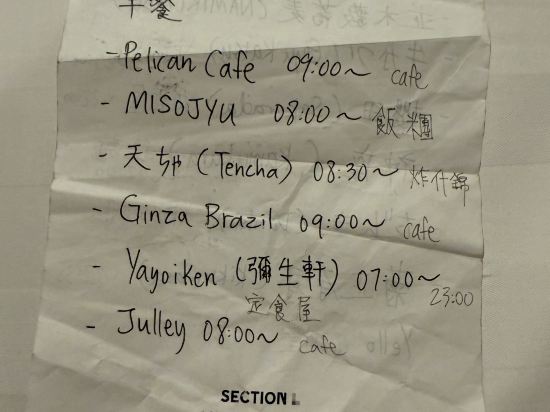 早餐
- Pelican Cafe 09:00~ cafe
- MISOJYU 08:00~ 飯糰
- 天ちゃ (Tencha) 08:30~ 炸什錦
- Ginza Brazil 09:00~ cafe
- Yayoiken (彌生軒) 07:00~ 23:00
定食屋
- Julley 08:00~ cafe
SECTION